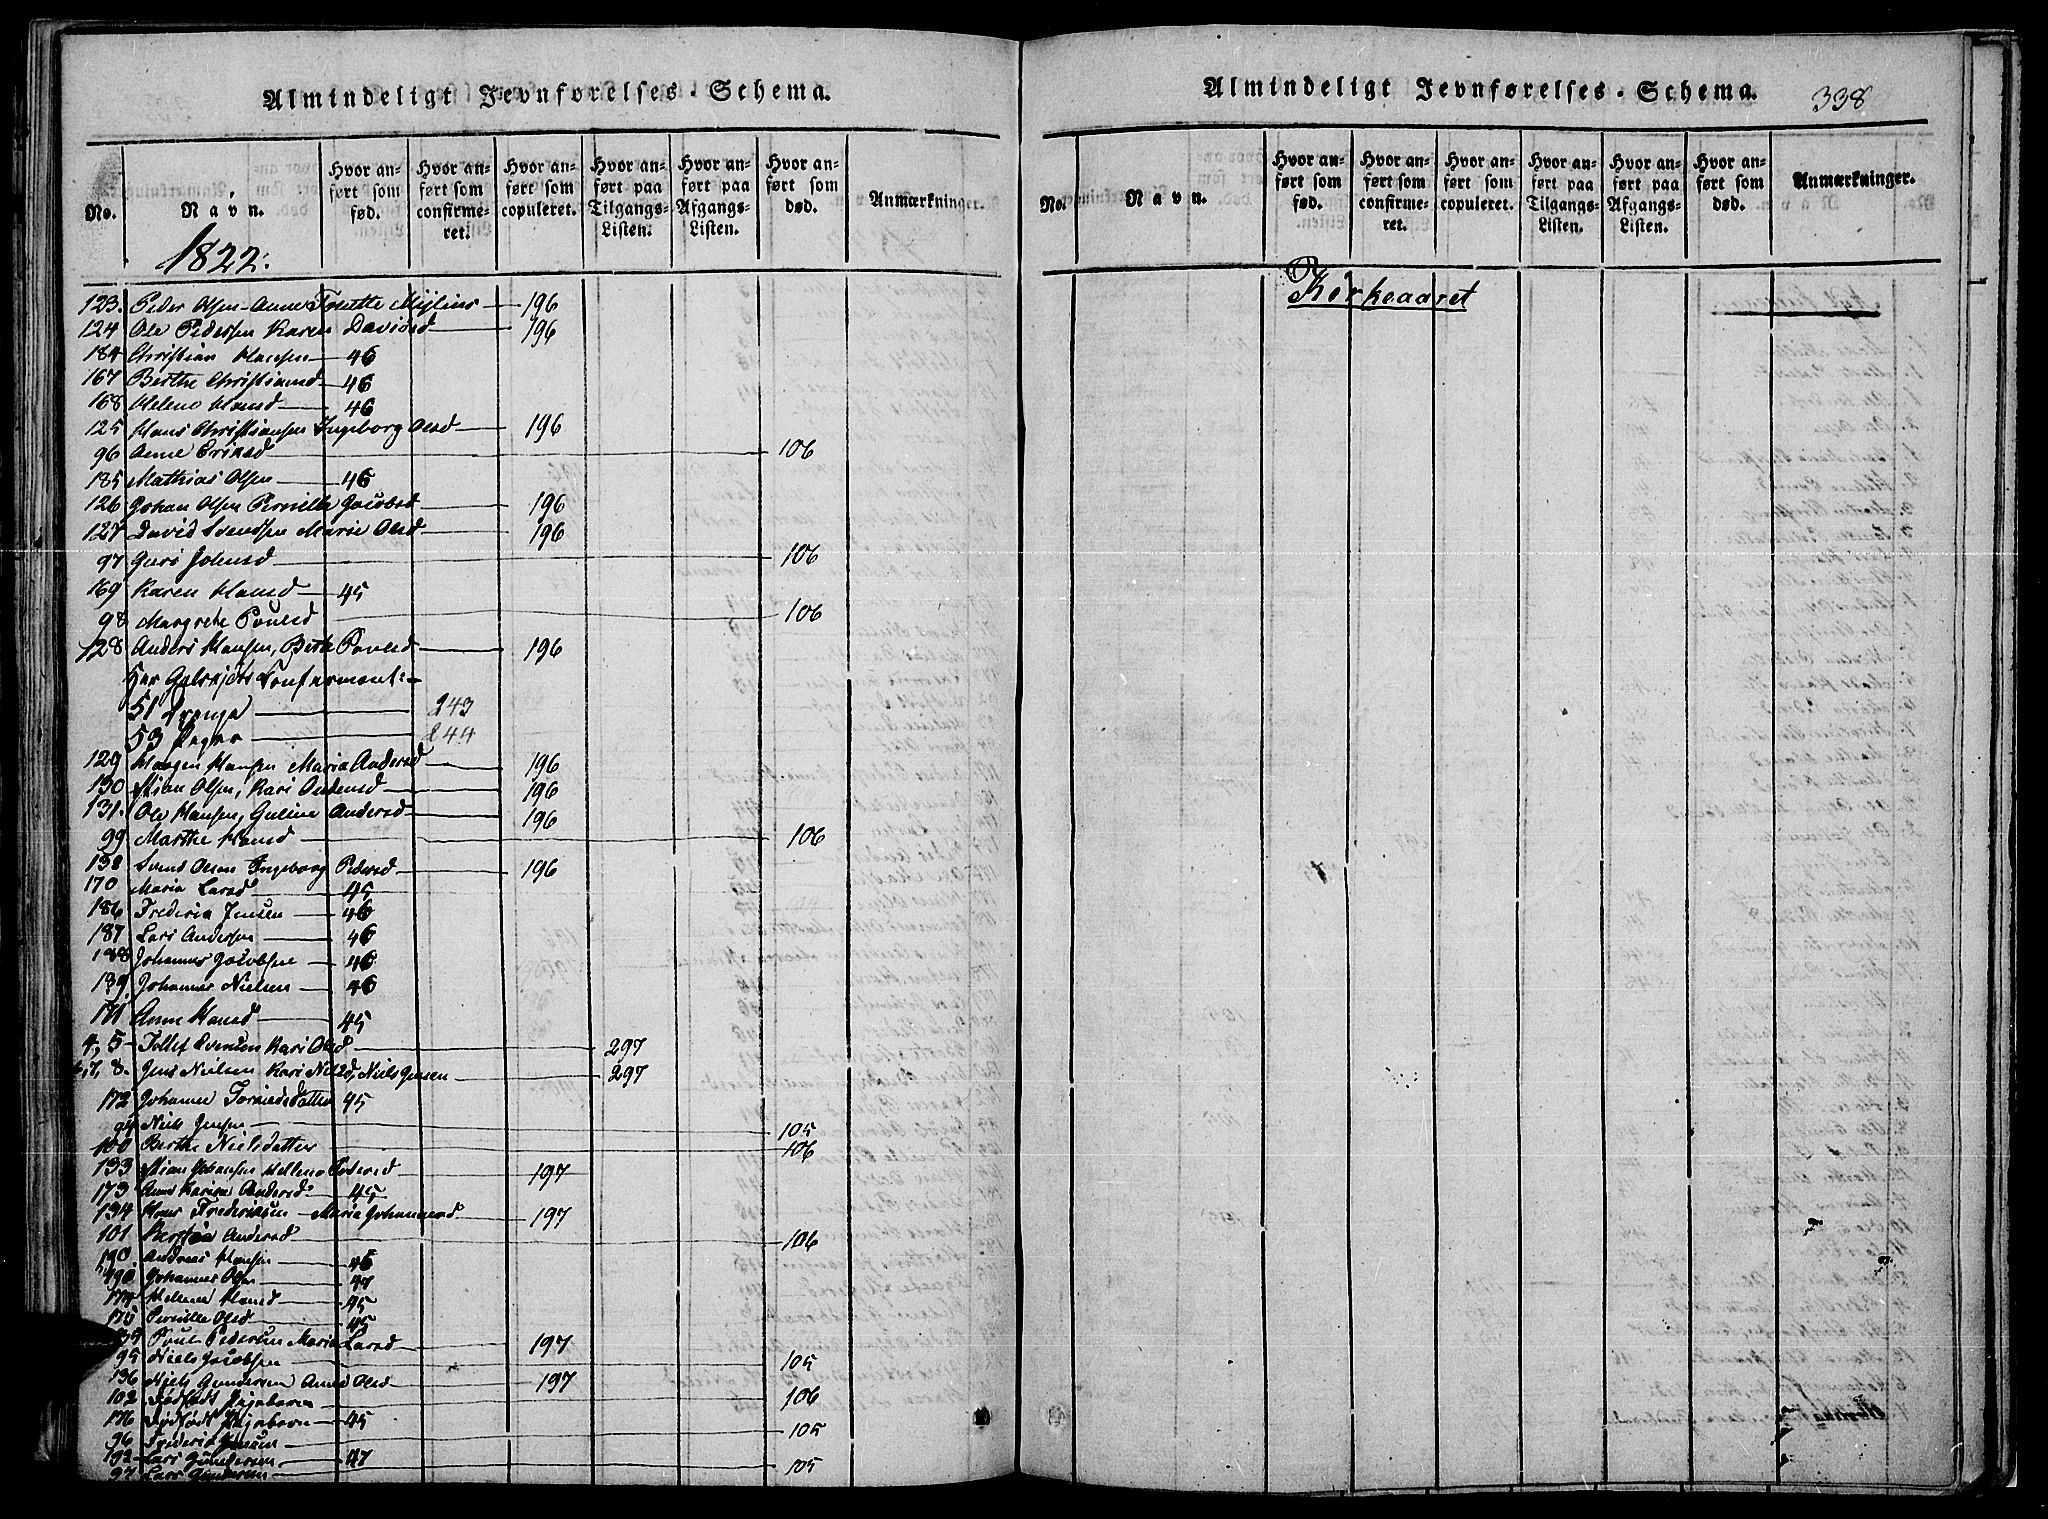 Almindeligt Jevnførelses-Schema.
No.
Navn.
Hvor anført som fød.
Hvor anført som confirmeret.
Hvor anført som copuleret.
Hvor anført paa Tilgangs-Listen.
Hvor anført paa Afgangs-Listen.
Hvor anført som død.
Anmærkninger.
1822.
123. Peder Olsen - Anne 196
124 Ole Pedersen Karen Davidsd 196
184 Christian Hansen 46
167 Berthe Christiansd 46
168 Helene Hansd 46
125 Hans Christiansen Ingeborg Olsd 196
96 Anne Eriksd 106
185 Mathias Olsen 46
126 Johan Olsen Pernille Jacobsd 196
127 David Svendsen Marie Olsd 196
97 Guri Johnsd 106
169 Karen Hansd 45
98 Margrethe Poulsd 106
128 Anders Hansen, Berthe Poulsd 196
51 Drenge 243
53 Piger 244
129 Haagen Hansen Maria Andersd 196
130 Stian Olsen, Kari Andersd 196
131. Ole Hansen, Guline Andersd 196
99 Marthe Hansd 106
132 Svend Olsen Ingeborg Pedersd 196
170 Maria Larsd 45
186 Frederik Jensen 46
187 Lars Andersen 46
188 Johannes Jacobsen 46
189 Johannes Nielsen 46
171 Anne Hansd 45
4, 5 Tollef Evensen Kari Olsd 297
6, 7, 8. Jens Nielsen Kari Nilsd, Niels Jensen 297
172 Johanne 45
94 Niels Jensen 105
100 Berthe Nielsdatter 106
133 Stian Johansen Hellene Pedersd 197
173 Anne Karine Andersd 45
134 Hans Frederiksen - Maria Johannesd 197
101 Andersd 106
190. Andreas Hansen 46
190 Johannes Olsen 47
174 Helene Hansd 45
175 Pernille Olsd 45
135 Poul Pedersen Maria Larsd 197
95 Niels Jacobsen 105
136 Niels Gundersen Anne Olsd 197
102 Dødfødt Pigebarn 106
176 Dødfødt Pigebarn 45
96 Frederik Jensen 105
192 Lars Gundersen 47
97 Lars Gundersen 105
Almindeligt Jevnførelses-Schema. 338
No.
Navn.
Hvor anført som fød.
Hvor anført som confirmeret.
Hvor anført som copuleret.
Hvor anført paa Tilgangs-Listen.
Hvor anført paa Afgangs-Listen.
Hvor anført som død.
Anmærkninger.
Kirkeaaret